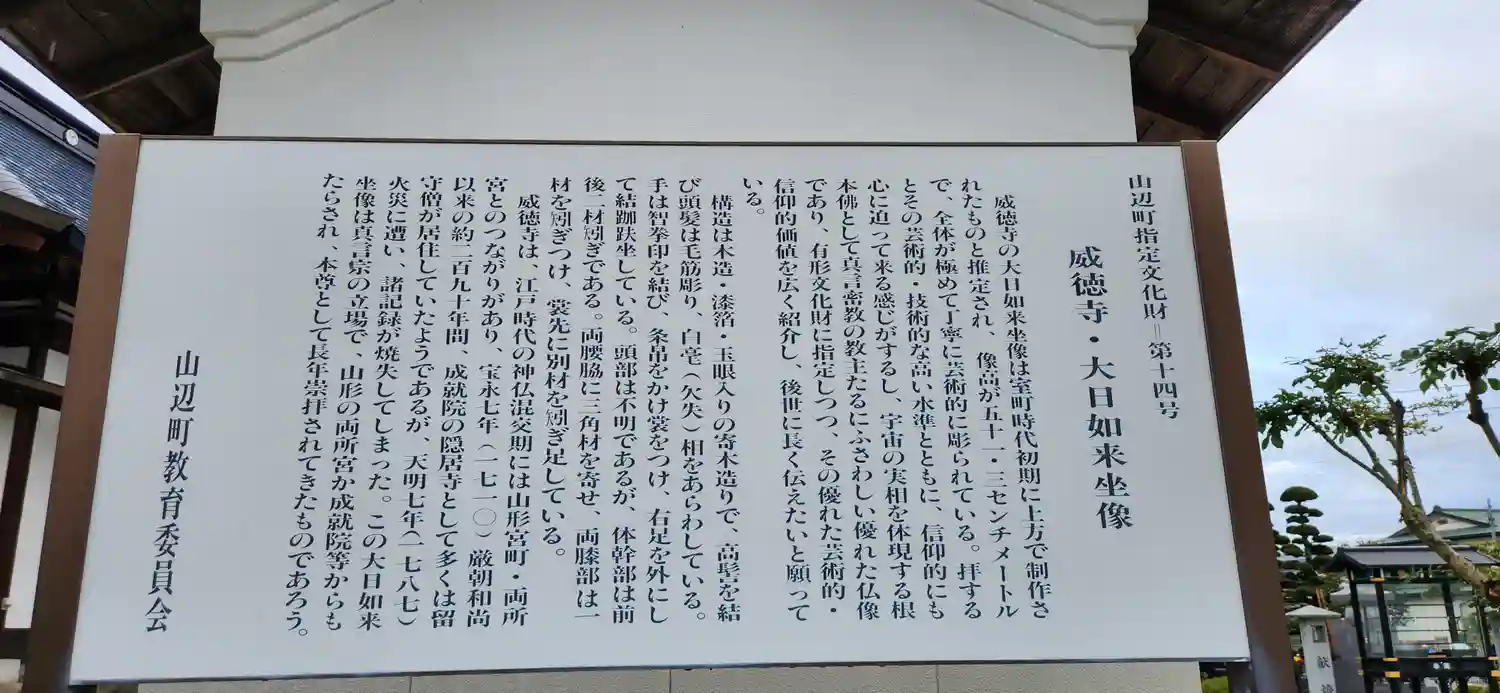 山辺町指定文化財=第十四号
威徳寺・大日如来坐像
威徳寺の大日如来坐像は室町時代初期に上方で制作さ
れたものと推定され、像高が五十一・三センチメートル
で、全体が極めて丁寧に芸術的に彫られている。拝する
とその芸術的・技術的な高い水準とともに、信仰的にも
心に迫って来る感じがするし、宇宙の実相を体現する根
本佛として真言密教の教主たるにふさわしい優れた仏像
であり、有形文化財に指定しつつ、その優れた芸術的・
信仰的価値を広く紹介し、後世に長く伝えたいと願って
いる。
構造は木造・漆箔・玉眼入りの寄木造りで、高髻を結
び頭髪は毛筋彫り、白毫(欠失)相をあらわしている。
手は智拳印を結び、条帛をかけ裳をつけ、右足を外にし
て結跏趺坐している。頭部は不明であるが、体幹部は前
後二材矧ぎである。両腰脇に三角材を寄せ、両膝部は一
材を矧ぎつけ、裳先に別材を矧ぎ足している。
威徳寺は、江戸時代の神仏混交期には山形宮町・両所
宮とのつながりがあり、宝永七年(一七一〇)厳朝和尚
以来の約二百九十年間、成就院の隠居寺として多くは留
守僧が居住していたようであるが、天明七年(一七八七)
火災に遭い、諸記録が焼失してしまった。この大日如来
坐像は真言宗の立場で、山形の両所宮か成就院等からも
たらされ、本尊として長年崇拝されてきたものであろう。
山辺町教育委員会
献